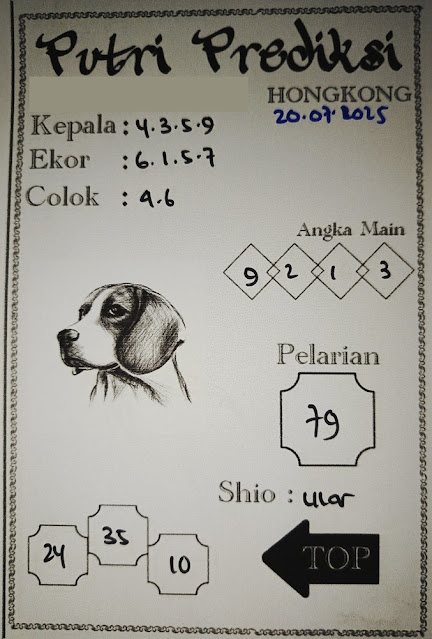 Putri Prediksi
HONGKONG
20.07.2025
Kepala : 4.3.5.9
Ekor : 6.1.5.7
Colok : 9.6
Angka Main
9 2 1 3
Pelarian
79
Shio : ular
24 35 10
TOP